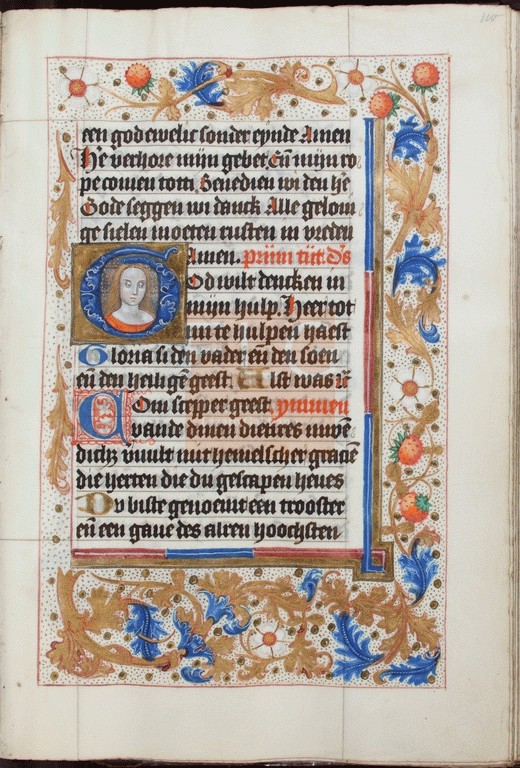 een god ewelic sonder eynde Amen
He verhore mijn gebet Eñ mijn ro
pe comen totti. Benedien wi den he
Gode seggen wi danck Alle gelom
ge sielen moeten rusten in vreden
Amen. prijm tijt. Ds
God wilt dencken in
mijn hulp. Heer tot
mi te hulpen haest
Gloria si den vader eñ den soen
eñ den heiligē geest. Als ist was iē
Com scepper geest ymmen
vande dinen dietires
dich vuult mit hemelscher gracie
die herten die du gescapen heues
Du biste genoemt een trooster
eñ een gaue des alren hoochsten